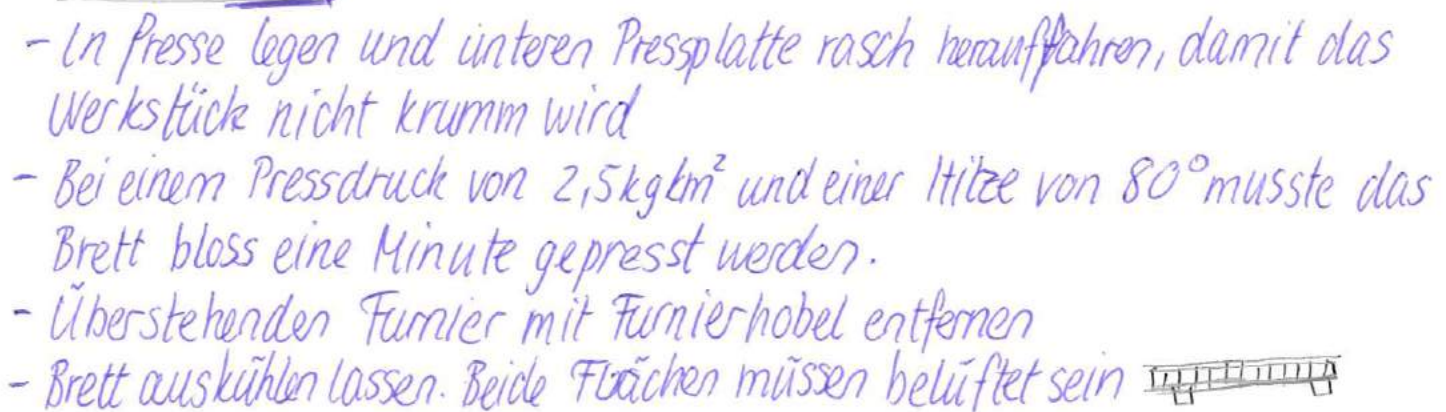 - In Presse legen und unteren Pressplatte rasch herauffahren, damit das
Werkstück nicht krumm wird
- Bei einem Pressdruck von 2,5kg/cm² und einer Hitze von 80° musste das
Brett bloss eine Minute gepresst werden.
- Überstehenden Furnier mit Furnierhobel entfernen
- Brett auskühlen lassen. Beide Flächen müssen belüftet sein